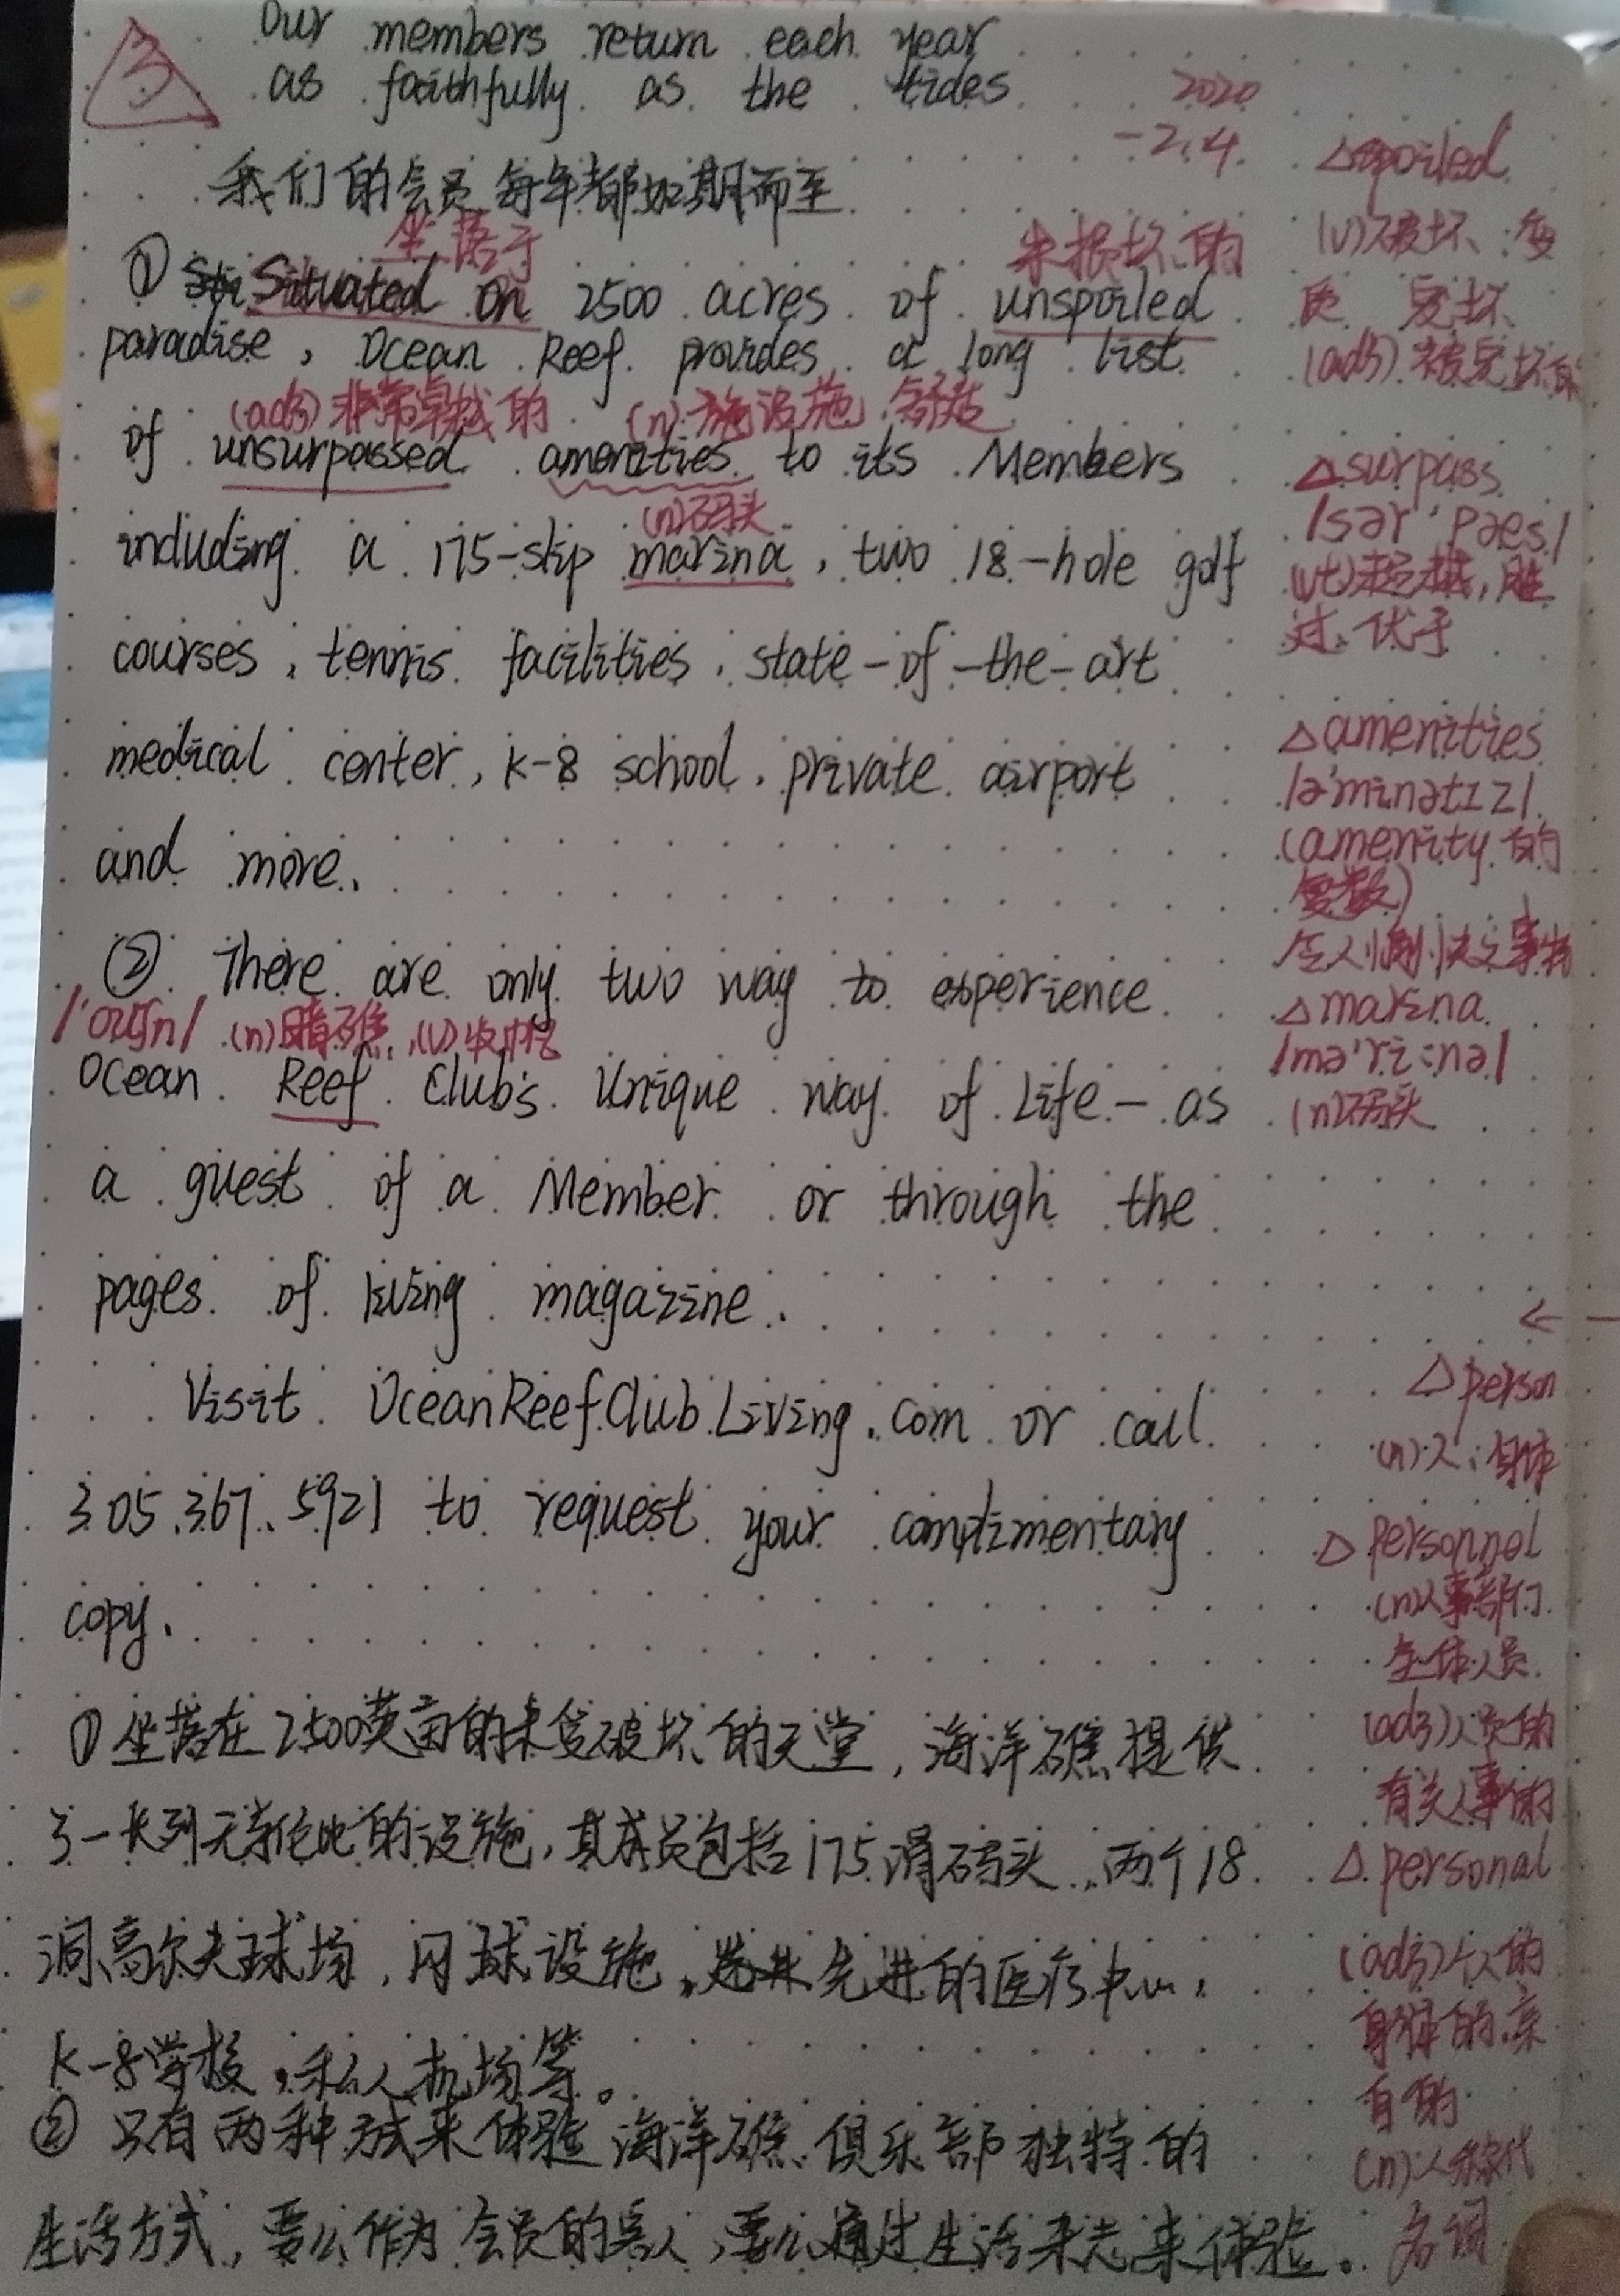 3
Our members return each year
as faithfully as the tides
2020
-2.4.
我们的会员每年都如期而至
坐落于 未损坏的
① Situated on 2500 acres of unspoiled
paradise, Ocean Reef provides a long list
(adj)非常卓越的 (n)
of unsurpassed amenities to its Members
(n)码头
including a 175-slip marina, two 18-hole golf
courses, tennis facilities, state-of-the-art
medical center, k-8 school, private airport
and more.
② There are only two way to experience
/'oʊʃn/ (n)暗礁 (v)
Ocean Reef Club's Unique way of Life - as
a guest of a Member or through the
pages of living magazine.
Visit OceanReefClubLiving.com or call
305.367.5921 to request your complimentary
copy.
①坐落在2500英亩的未受破坏的天堂,海洋礁提供
了一长列无与伦比的设施,其成员包括175滑码头,两个18
洞高尔夫球场,网球设施,先进的医疗中心,
K-8学校,私人机场等。
②只有两种方式来体验海洋礁俱乐部独特的
生活方式,要么作为会员的客人,要么通过生活杂志来体验。
△spoiled
(v)破坏;变
质 宠坏
(adj)被宠坏的
△surpass
/sər'pæs/
(vt)超越,胜
过,优于
△amenities
/ə'minətɪz/
(amenity的
复数)
令人愉快之事物
△marina
/mə'ri:nə/
(n)码头
←
△person
(n)人;身体
△personnel
(n)人事部门
全体人员
(adj)人员的
有关人事的
△personal
(adj)个人的
身体的亲
自的
(n)人称代
名词